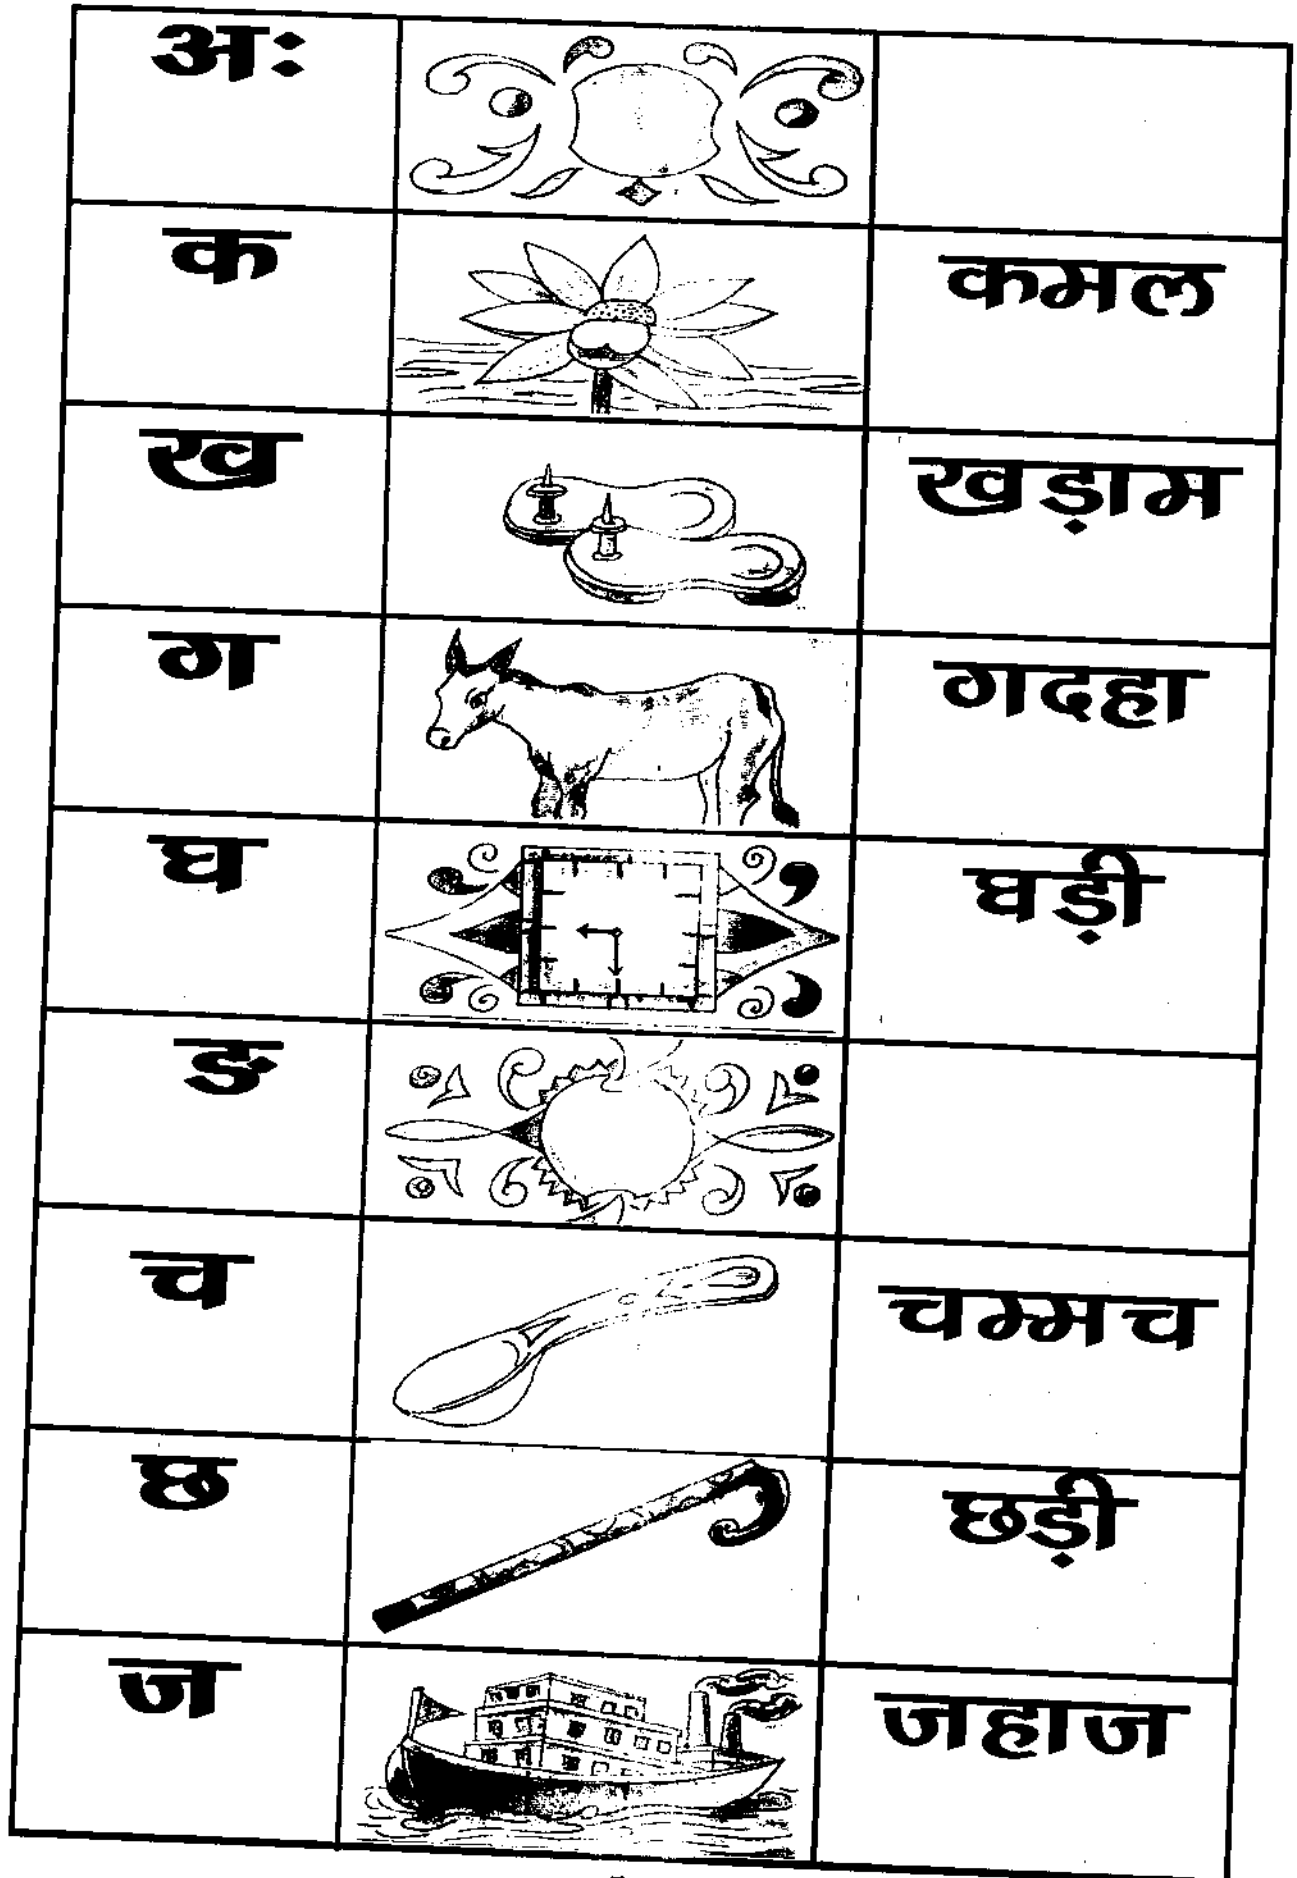 अः
क कमल
ख खड़ाम
ग गदहा
घ घड़ी
ङ
च चम्मच
छ छड़ी
ज जहाज